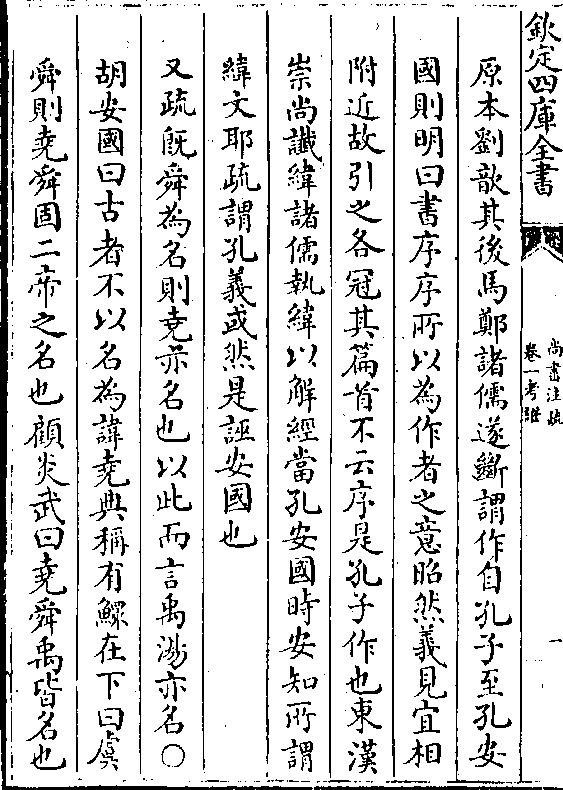 欽定四庫全書
尚書注疏
卷一考證
一
原本劉歆其後馬鄭諸儒遂斷謂作自孔子至孔安
國則明曰書序序所以為作者之意昭然義見宜相
附近故引之各冠其篇首不云序是孔子作也東漢
崇尚讖緯諸儒執緯以解經當孔安國時安知所謂
緯文耶疏謂孔義或然是誣安國也
又疏既舜為名則堯亦名也以此而言禹湯亦名〇
胡安國曰古者不以名為諱堯典稱有鰥在下曰虞
舜則堯舜固二帝之名也顧炎武曰堯舜禹皆名也